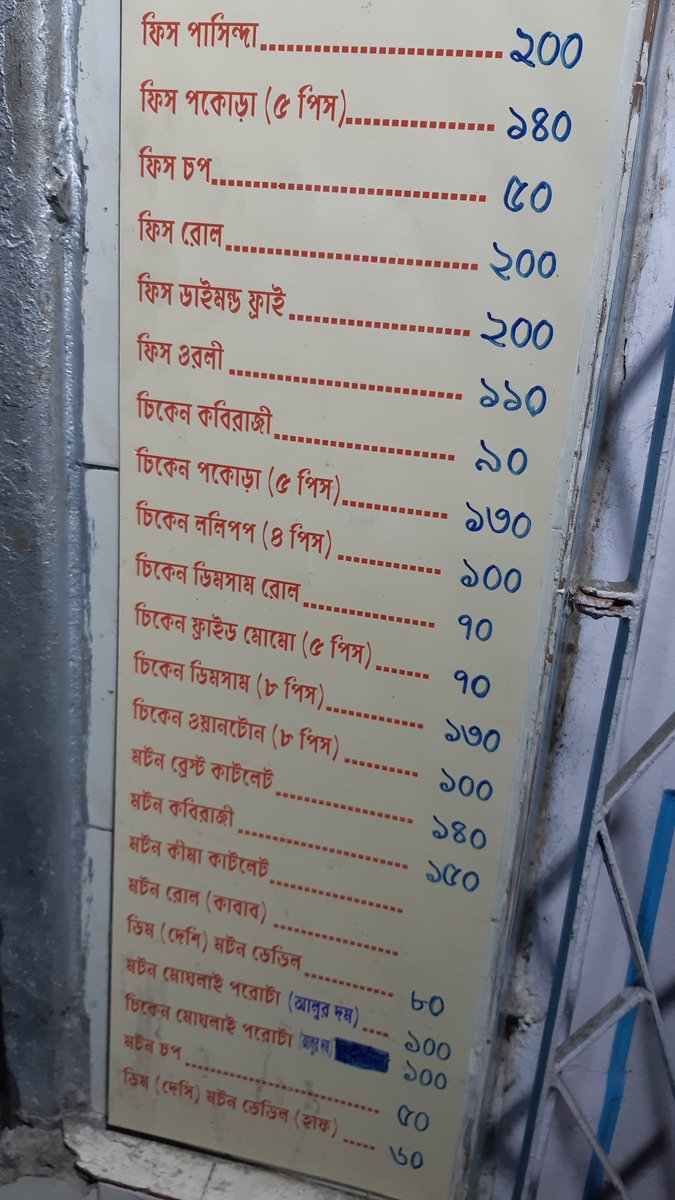 ফিস পাসিন্দা.......................... ২০০
ফিস পকোড়া (৫ পিস)................ ১৪০
ফিস চপ.............................. ৫০
ফিস রোল............................ ২০০
ফিস ডাইমন্ড ফ্রাই.................... ২০০
ফিস ওরলী.......................... ১১০
চিকেন কবিরাজী.................... ৯০
চিকেন পকোড়া (৫ পিস)............ ১৩০
চিকেন ললিপপ (৪ পিস)............ ১০০
চিকেন ডিমসাম রোল................ ৭০
চিকেন ফ্রাইড মোমো (৫ পিস)...... ৭০
চিকেন ডিমসাম (৮ পিস)............ ১৩০
চিকেন ওয়ানটোন (৮ পিস)......... ১০০
মটন ব্রেস্ট কাটলেট................ ১৪০
মটন কবিরাজী...................... ১৫০
মটন কীমা কাটলেট..................
মটন রোল (কাবাব)..................
ডিম (দেশি) মটন ডেভিল............ ৮০
মটন মোঘলাই পরোটা (আলুর দম).... ১০০
চিকেন মোঘলাই পরোটা (আলুর দম) ১০০
মটন চপ............................ ৫০
ডিম (দেসি) মটন ডেভিল (হাফ)..... ৬০